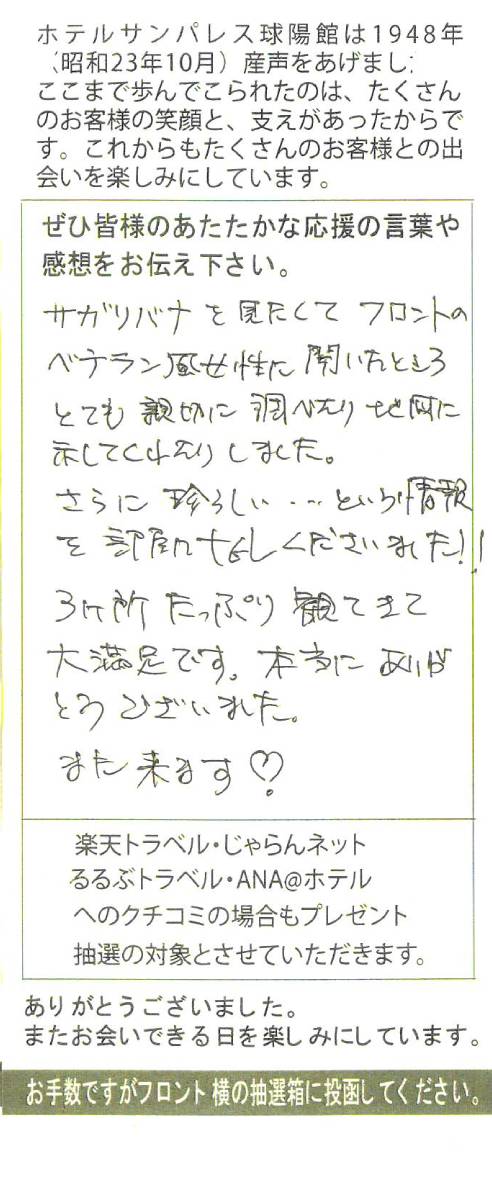 ホテルサンパレス球陽館は1948年
（昭和23年10月）産声をあげまし
ここまで歩んでこられたのは、たくさん
のお客様の笑顔と、支えがあったからで
す。これからもたくさんのお客様との出
会いを楽しみにしています。
ぜひ皆様のあたたかな応援の言葉や
感想をお伝え下さい。
サガリバナを見たくてフロントの
ベテラン風女性に聞いたところ
とても親切に調べたり地図に
示してくれたりしました。
さらに珍らしい…という情報
を部屋に下さいました!!
3ヶ所たっぷり観てきて
大満足です。本当にありが
とうございました。
また来ます♡
楽天トラベル・じゃらんネット
るるぶトラベル・ANA@ホテル
へのクチコミの場合もプレゼント
抽選の対象とさせていただきます。
ありがとうございました。
またお会いできる日を楽しみにしています。
お手数ですがフロント横の抽選箱に投函してください。